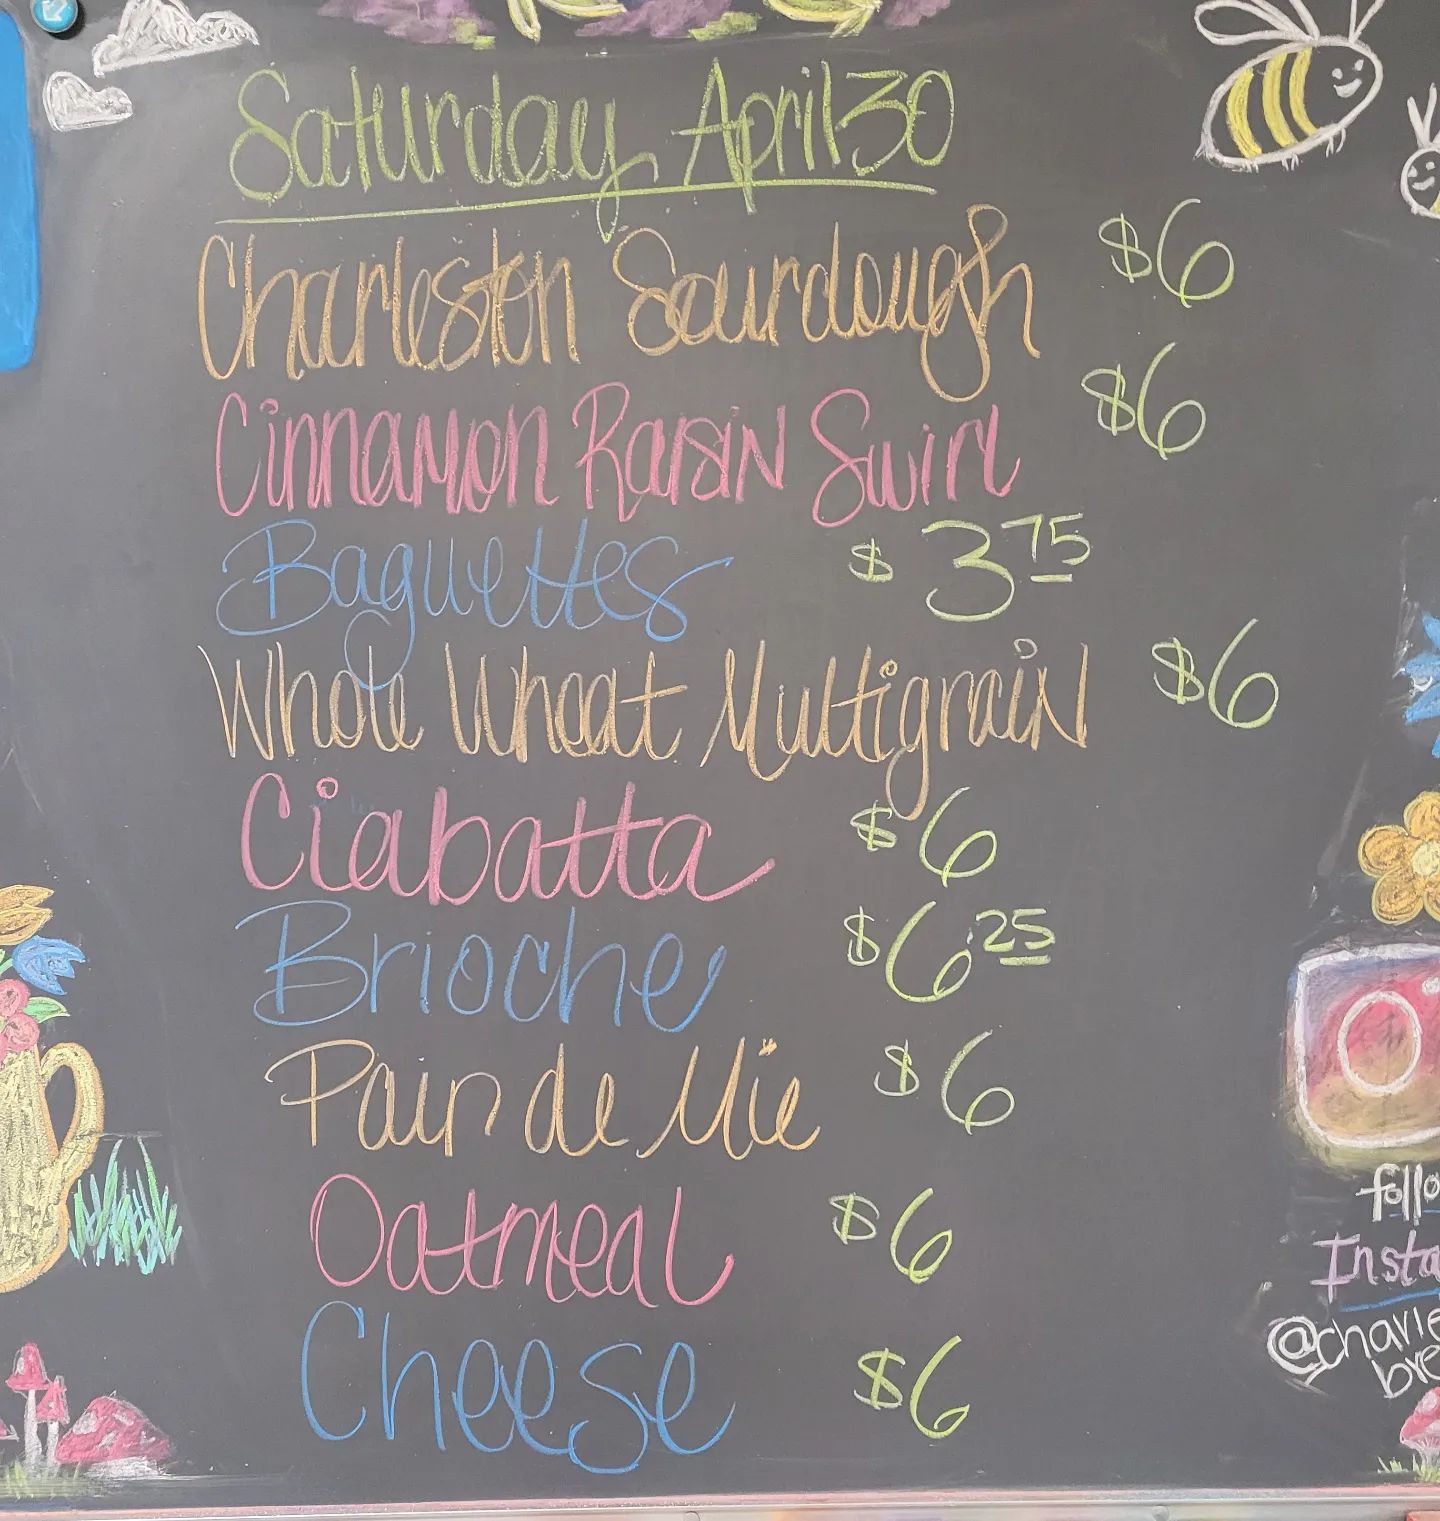 Saturday April 30
Charleston Sourdough $6
Cinnamon Raisin Swirl $6
Baguettes $3 75
Whole Wheat Multigrain $6
Ciabatta $6
Brioche $6.25
Pain de Mie $6
Oatmeal $6
Cheese $6
follo
Insta
@charle
bre